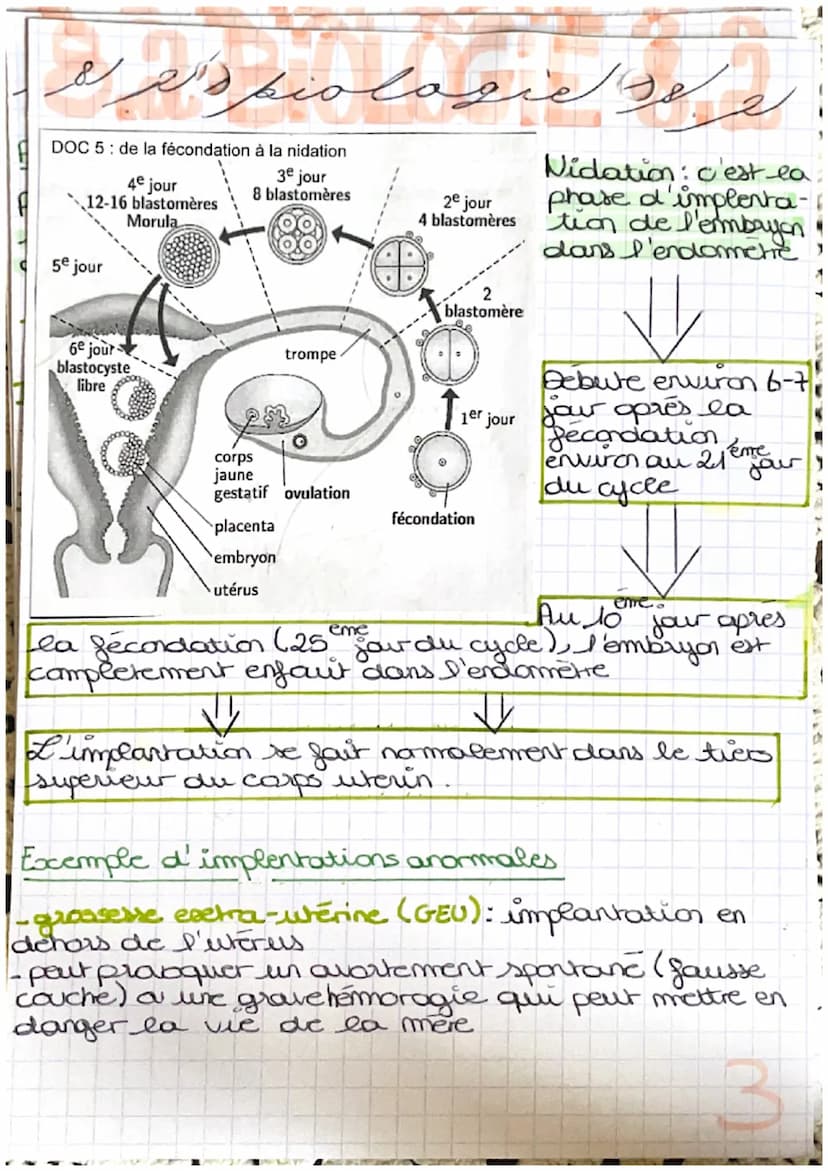 8.2 BIOLOGIE 8.2
DOC 5 : de la fécondation à la nidation
3e jour
8 blastomères
4e jour
12-16 blastomères
Morula
2e jour
4 blastomères
5e jour
2
blastomère
6e jour
blastocyste
libre
trompe
1er jour
corps
jaune
gestatif
ovulation
fécondation
placenta
embryon
utérus
Nidation : c'est la
phase d'implenta-
tion de l'embryon
dans l'endomètre
Débute environ 6-7
jour après la
fécondation,
environ au 21ème jour
du cycle
Au 10ème jour après
la fécondation (25ème jour du cycle), l'embryon est
complètement enfouit dans l'endomètre
L'implantation se fait normalement dans le tiers
supérieur du corps utérin.
Exemple d'implentations anormales
- grossesse exetra-utérine (GEU) : implantation en
dehors de l'utérus
- peut provoquer un avortement spontané (fausse
couche) a une grave hémorogie qui peut mettre en
danger la vie de la mère
3